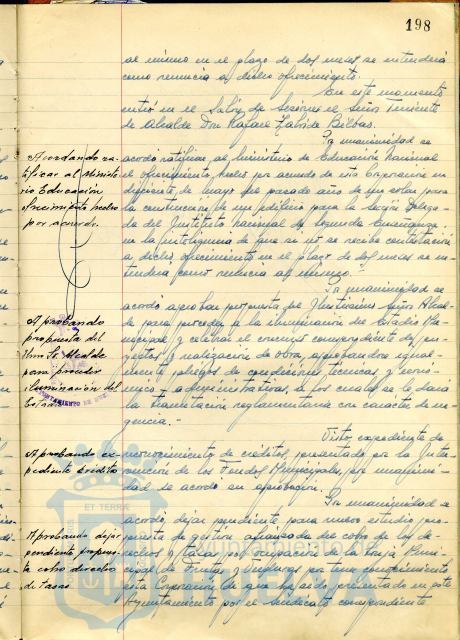 198
al mismo en el plazo de dos meses se entenderá
como renuncia a dicho ofrecimiento.
En este momento
entró en el Salón de Sesiones el Señor Teniente
de Alcalde Don Rafael
Por unanimidad se
Acordando ra-
tificar al Ministe-
rio Educación
ofrecimiento hecho
por acuerdo.
acordó ratificar al Ministerio de Educación Nacional
el ofrecimiento hecho por acuerdo de esta Corporación en
diecisiete de Mayo del pasado año de un solar para
la construcción de un edificio para la Sección Delega-
da del Instituto Nacional de Segunda Enseñanza,
en la inteligencia de que si no se recibe contestación
a dicho ofrecimiento en el plazo de dos meses se en-
tenderá como renuncia al mismo.
Por unanimidad se
Aprobando
propuesta del
Ilmo Sr. Alcalde
para proceder
iluminación del
Estadio
acordó aprobar propuesta del Ilustrísimo Señor Alcal-
de para proceder a la iluminación del Estadio Mu-
nicipal y celebrar el concurso correspondiente de pro-
yectos y realización de obra, aprobándose igual-
mente pliegos de condiciones técnicas y econó-
mico-administrativas, a los cuales se le dará
la tramitación reglamentaria con carácter de ur-
gencia.-
Visto expediente de
Aprobando ex-
pediente crédito
reconocimiento de créditos, presentado por la Inter-
vención de los Fondos Municipales, por unanimi-
dad se acordó su aprobación.
Por unanimidad se
Aprobando dejar
pendiente propues-
ta cobro derechos
de tasas
acordó, dejar pendiente para nuevo estudio pro-
puesta de gestión afianzada del cobro de los de-
rechos y tasas por ocupación de la Lonja Muni-
cipal de Frutas y Verduras por tener conocimiento
esta Corporación de que ha sido presentado en este
Ayuntamiento por el Sindicato correspondiente